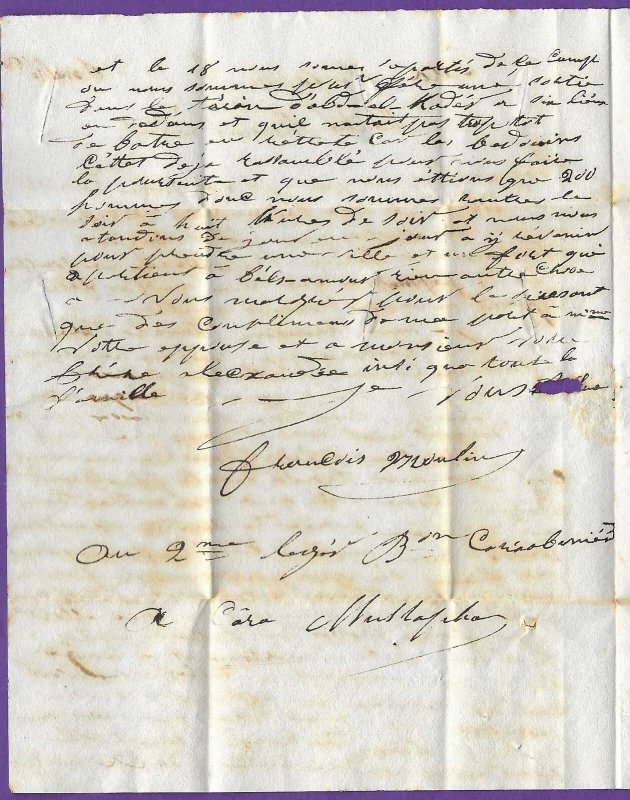 et le 18 nous somes repartés de le Camp
ou nous sommes pour faire une sortie
dans le téron d'abd-el Kader a six lieux
en dedans et quil netait pas trop tot
de batre en rétrete car les bedouins
c'éttet deja rassamblé pour nous faire
la poursuite et que nous éttions que 200
hommes donc nous sommes rentres le
soir à huit heures de soir et nous nous
atandons de jour en jour a y révenir
pour prandre une ville et un fort qui
apartient à rien autre chose
a vous marquer pour le présant
que des complimens de ma part a mme
votre eppouse et a monsieur votre
frère alexandre insi que toute la
famille je vous salue
francois Moulin
Au 2me leger Bon Carabiniés
A Cara Mustapha